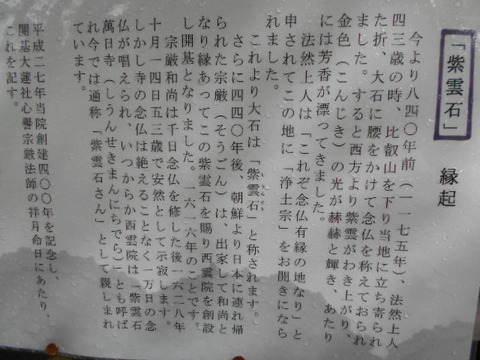 「紫雲石」 縁起
今より八四〇年前(一一七五年)、法然上人
四三歳の時、比叡山を下り当地に立ち寄られ
た折、大石に腰をかけて念仏を称えておられ
ました。すると西方より紫雲がわき上がり、
金色(こんじき)の光が赫赫と輝き、あたり
には芳香が漂ってきました。
法然上人は「これぞ念仏有縁の地なり」と
申されてこの地に「浄土宗」をお開きになら
れました。
これより大石は「紫雲石」と称されます。
さらに四四〇年後、朝鮮より日本に連れ帰
られた宗厳(そうごん)は、出家して和尚と
なり縁あってこの紫雲石を賜り西雲院を創設
し開基となりました。一六一六年のことです。
宗厳和尚は千日念仏を修した後一六二八年
十月一四日五三歳で安然として示寂します。
しかし寺の念仏は絶えることなく一万日の念
仏が唱えられ、いつからか西雲院は「紫雲石
萬日寺(しうんせきまんにちでら)」とも呼ば
れ今では通称「紫雲石さん」として親しまれ
ています。
平成二七年当院創建四〇〇年を記念し、
開基大蓮社心誉宗厳法師の祥月命日にあたり、
これを記す。